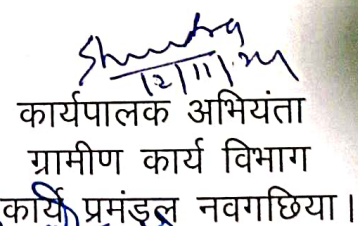 12/11/24
कार्यपालक अभियंता
ग्रामीण कार्य विभाग
कार्य प्रमंडल नवगछिया।